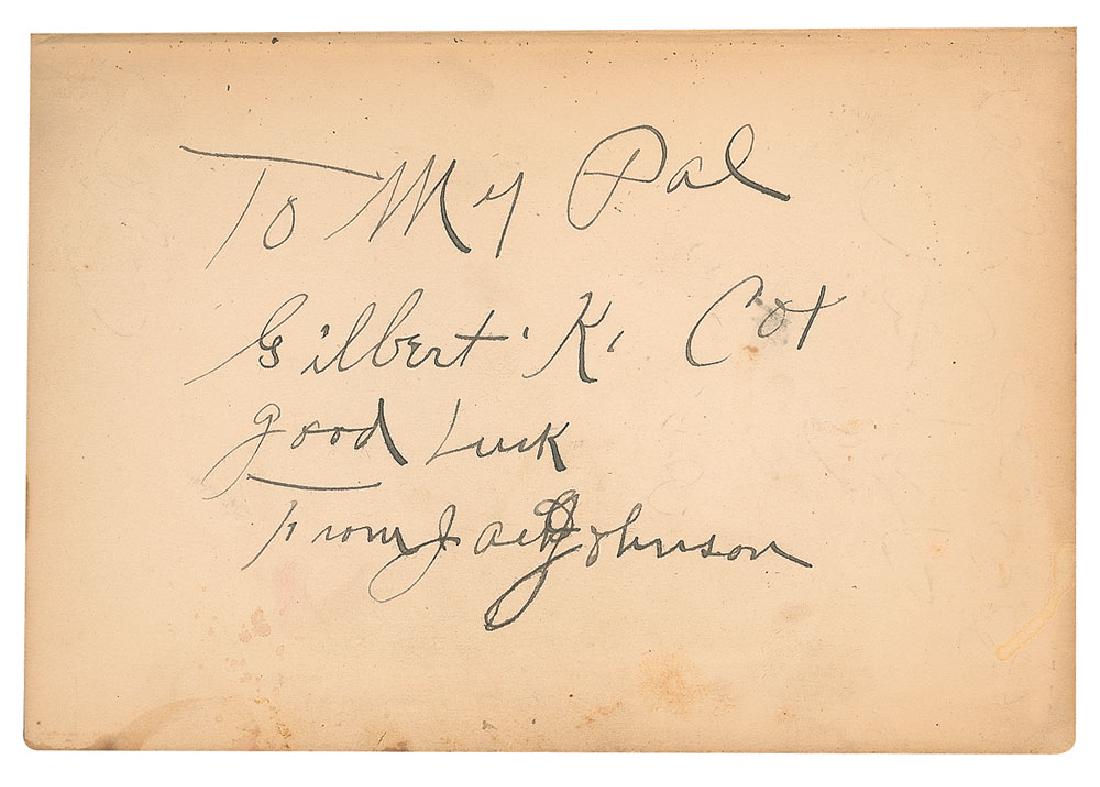 To My Pal
Gilbert K. Cox
good Luck
From Jack Johnson